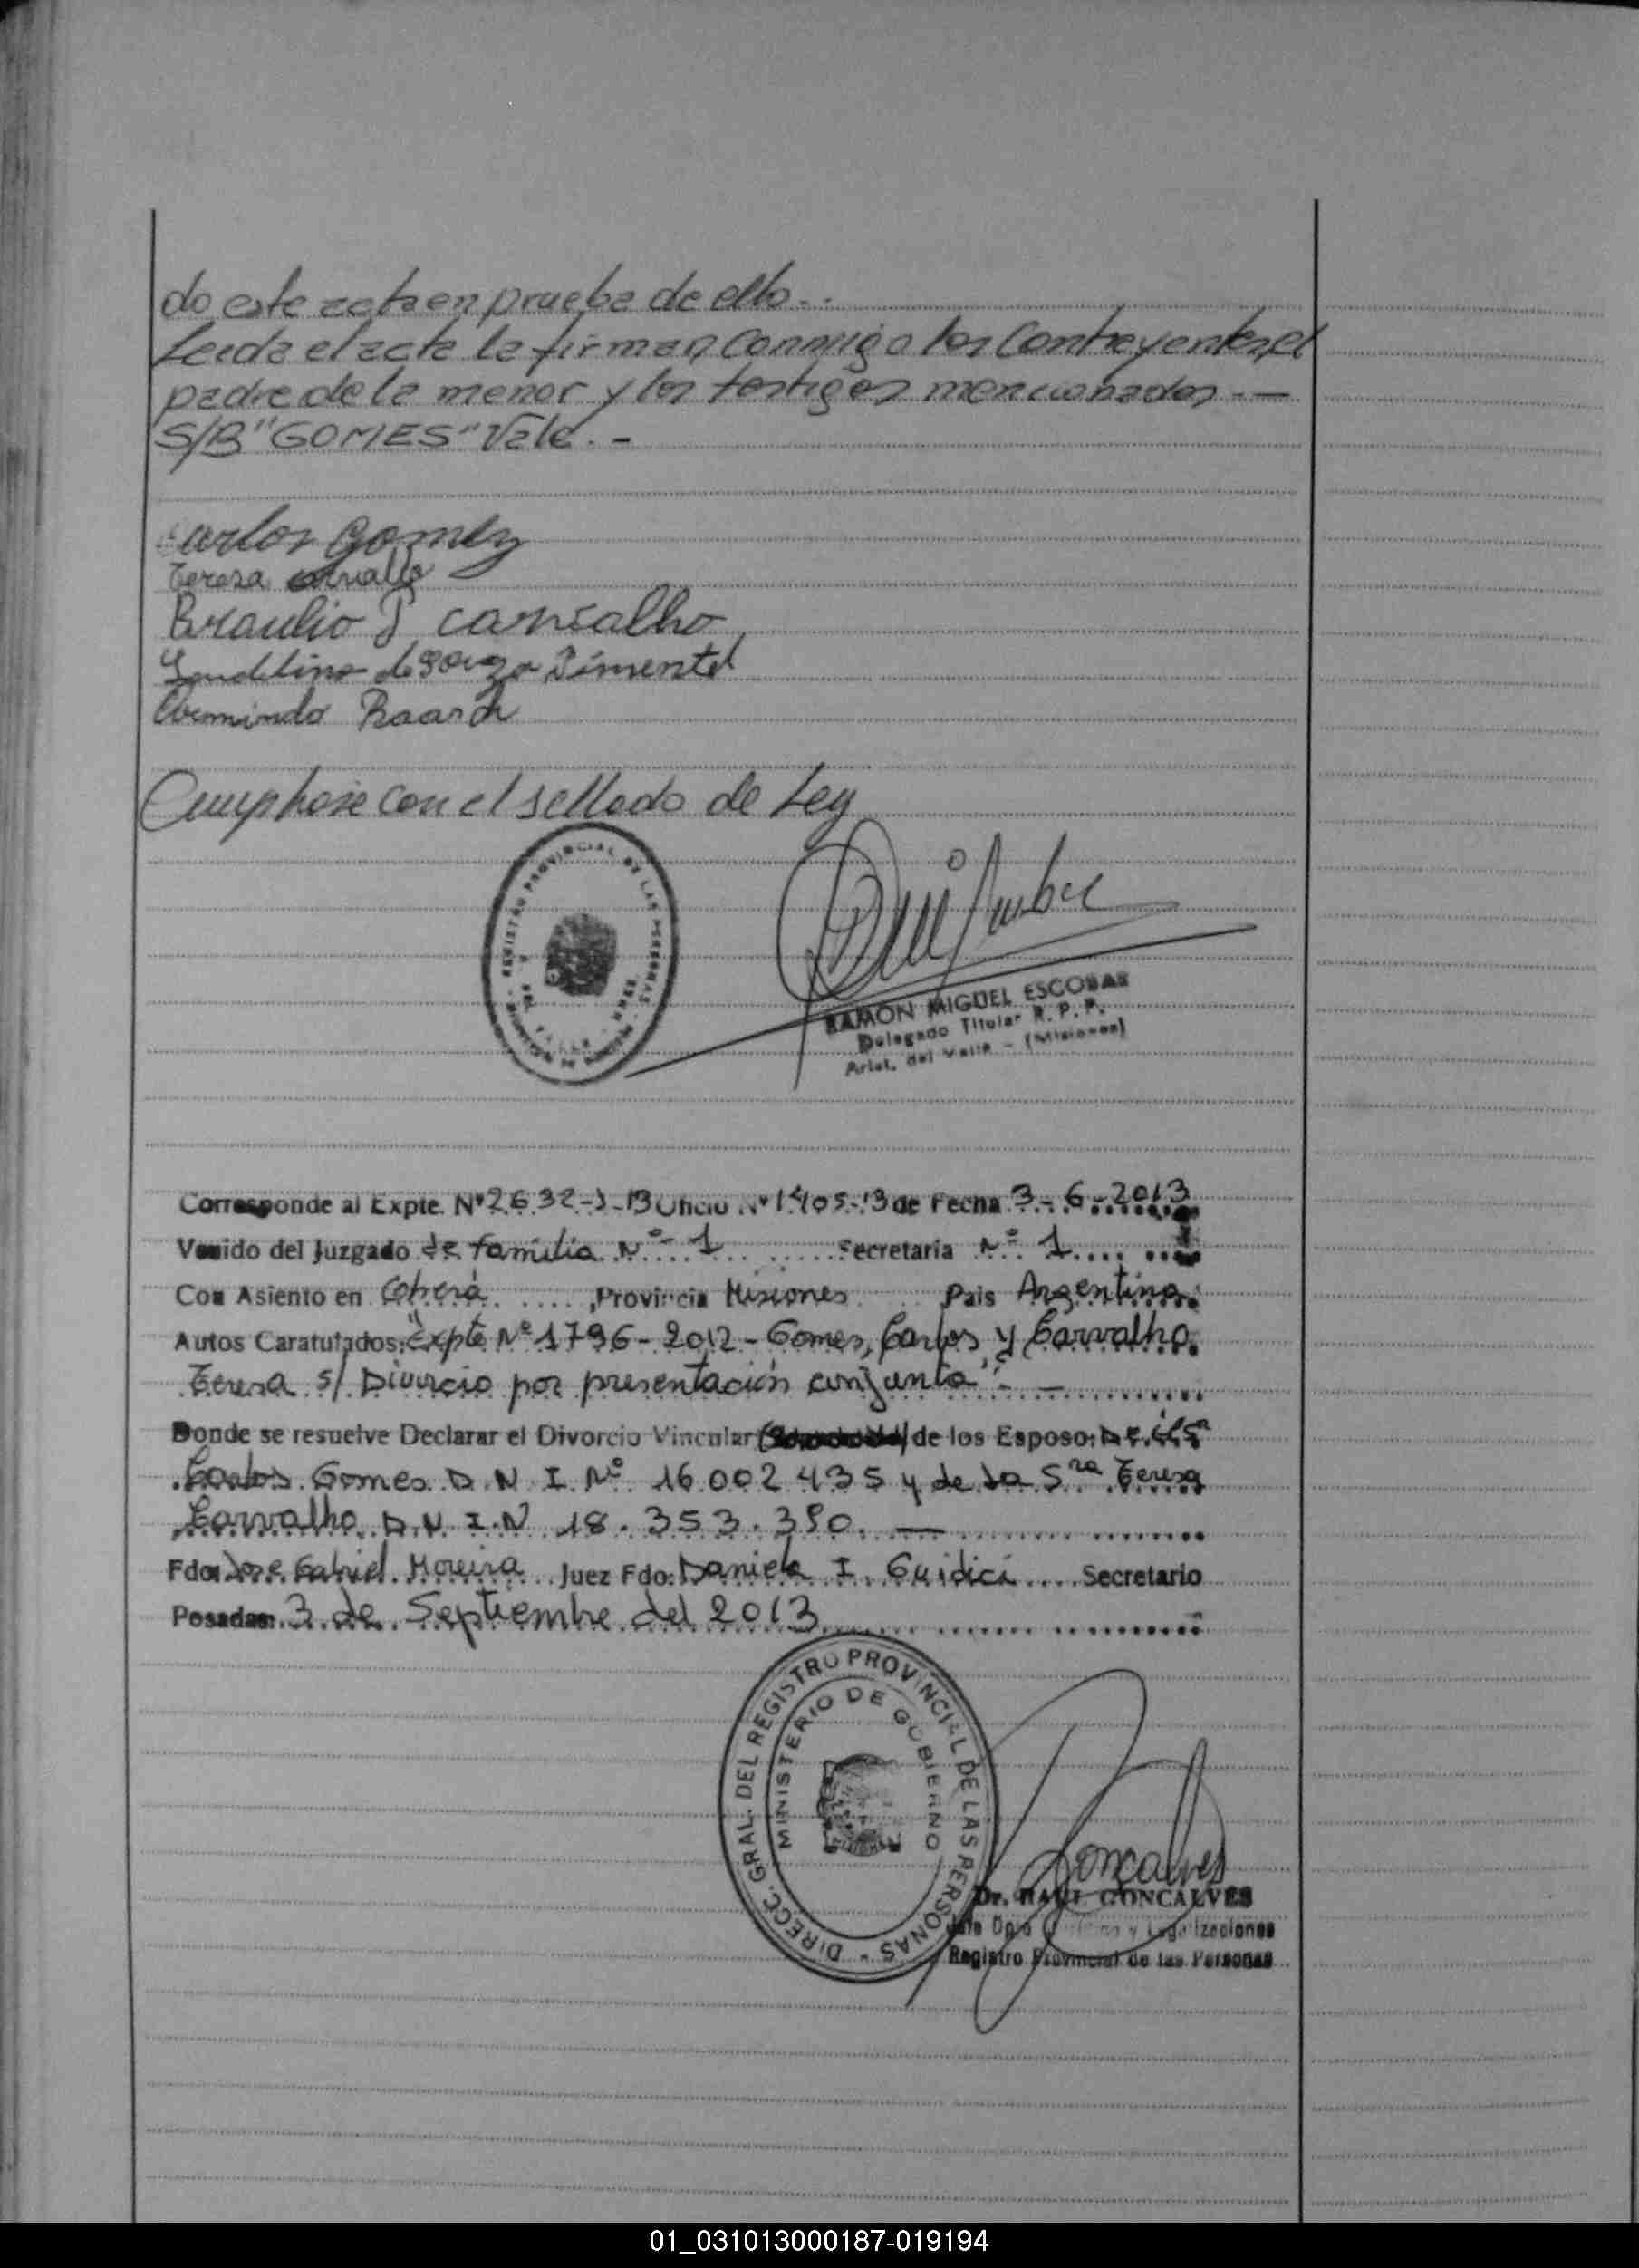 do este acta en prueba de ello..
Leida el acta la firman conmigo los contrayentes, el
padre de la menor y los testigos mencionados.-
S/B "GOMES" Vale.-
Carlos Gomez
Teresa
Braulio J carvalho
de Souza Pimentel
Cumplase con el sellado de Ley
REGISTRO PROVINCIAL DE LAS PERSONAS
RAMON MIGUEL ESCOBAR
Delegado Titular R. P. P.
Arist. del Valle - (Misiones)
Corresponde al Expte. Nº 2632-J-13 Oficio Nº 1405-13 de Fecha 3-6-2013
Venido del Juzgado de familia Nº 1 Secretaria Nº 1
Con Asiento en Oberá, Provincia Misiones Pais Argentina
Autos Caratulados: "Expte Nº 1796-2012-Gomes, Carlos y Carvalho
Teresa s/ Divorcio por presentación conjunta".-
Donde se resuelve Declarar el Divorcio Vincular de los Esposo: De
Carlos Gomes D.N.I. Nº 16.002.435 y de la Sra Teresa
Carvalho D.N.I.N 18.353.390.—
Fdo: Jose Gabriel Moreira Juez Fdo: Daniela I. Guidici Secretario
Posadas: 3 de Septiembre del 2013
DIRECC. GRAL. DEL REGISTRO PROVINCIAL DE LAS PERSONAS -
MINISTERIO DE GOBIERNO
MISIONES
Goncalves
Dr. RAUL GONCALVES
Jefe Dpto y Legalizaciones
Registro Provincial de las Personas
01_031013000187-019194